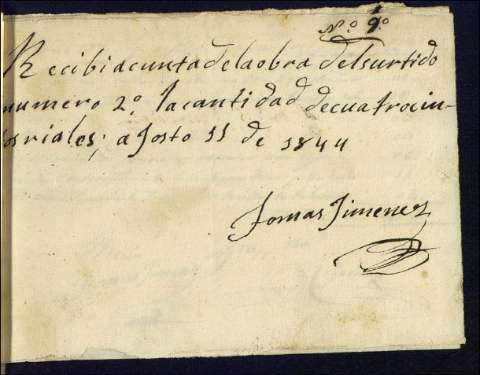 Nº 9º
Recibi acunta de la obra del surtido
numero 2º la cantidad de cuatrocin-
tos riales; agosto 11 de 1844
Tomas Jimenez